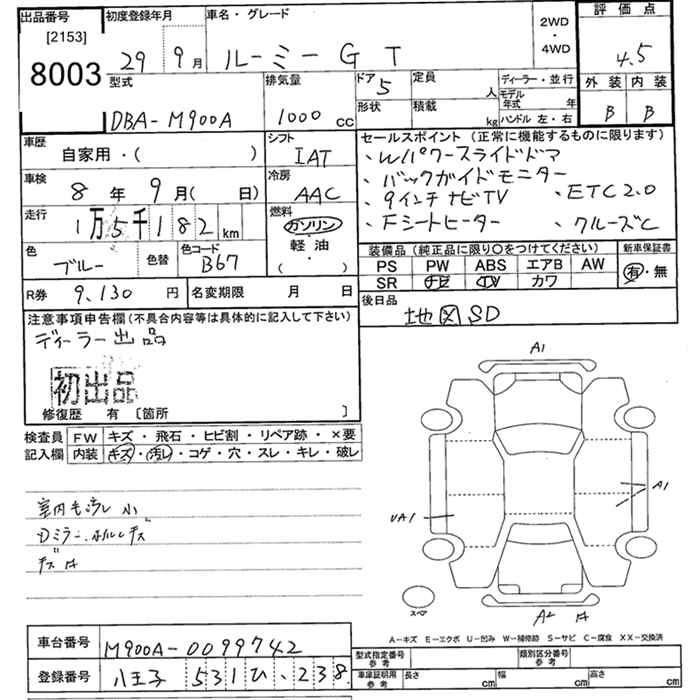 出品番号 初度登録年月 車名・グレード 2WD・4WD 評価点
[2153]
8003 29年 9月 ルーミー GT 4.5
型式 排気量 ドア 定員 ディーラー・並行 外装 内装
DBA-M900A 1000cc 5 人 モデル年式 年 B B
形状 積載 kg ハンドル 左・右
車歴 自家用・( ) シフト IAT
車検 8年 9月( 日) 冷房 AAC
走行 1万5千182km 燃料 ガソリン・軽油・( )
色 ブルー 色替 色コード B67
R券 9,130円 名変期限 月 日
セールスポイント (正常に機能するものに限ります)
、Wパワースライドドア
、バックガイドモニター
、9インチナビTV 、ETC2.0
、Fシートヒーター 、クルーズC
装備品(純正品に限り○をつけてください) 新車保証書
PS PW ABS エアB AW 有・無
SR ナビ TV カワ
後日品
地図SD
注意事項申告欄(不具合内容等は具体的に記入して下さい)
ディーラー出品
初出品
修復歴 有 [箇所 ]
検査員記入欄 FW キズ・飛石・ヒビ割・リペア跡・×要
内装 キズ・汚レ・コゲ・穴・スレ・キレ・破レ
室内 汚レ 小
A1
A1
UA1
スペア
A2
A-キズ E-エクボ U-凹み W-補修跡 S-サビ C-腐食 XX-交換済
車台番号 M900A-0099742
登録番号 八王子 531 ひ ・238
型式指定番号 参考 類別区分番号 参考
車庫証明用 参考 長さ cm 幅 cm 高さ cm